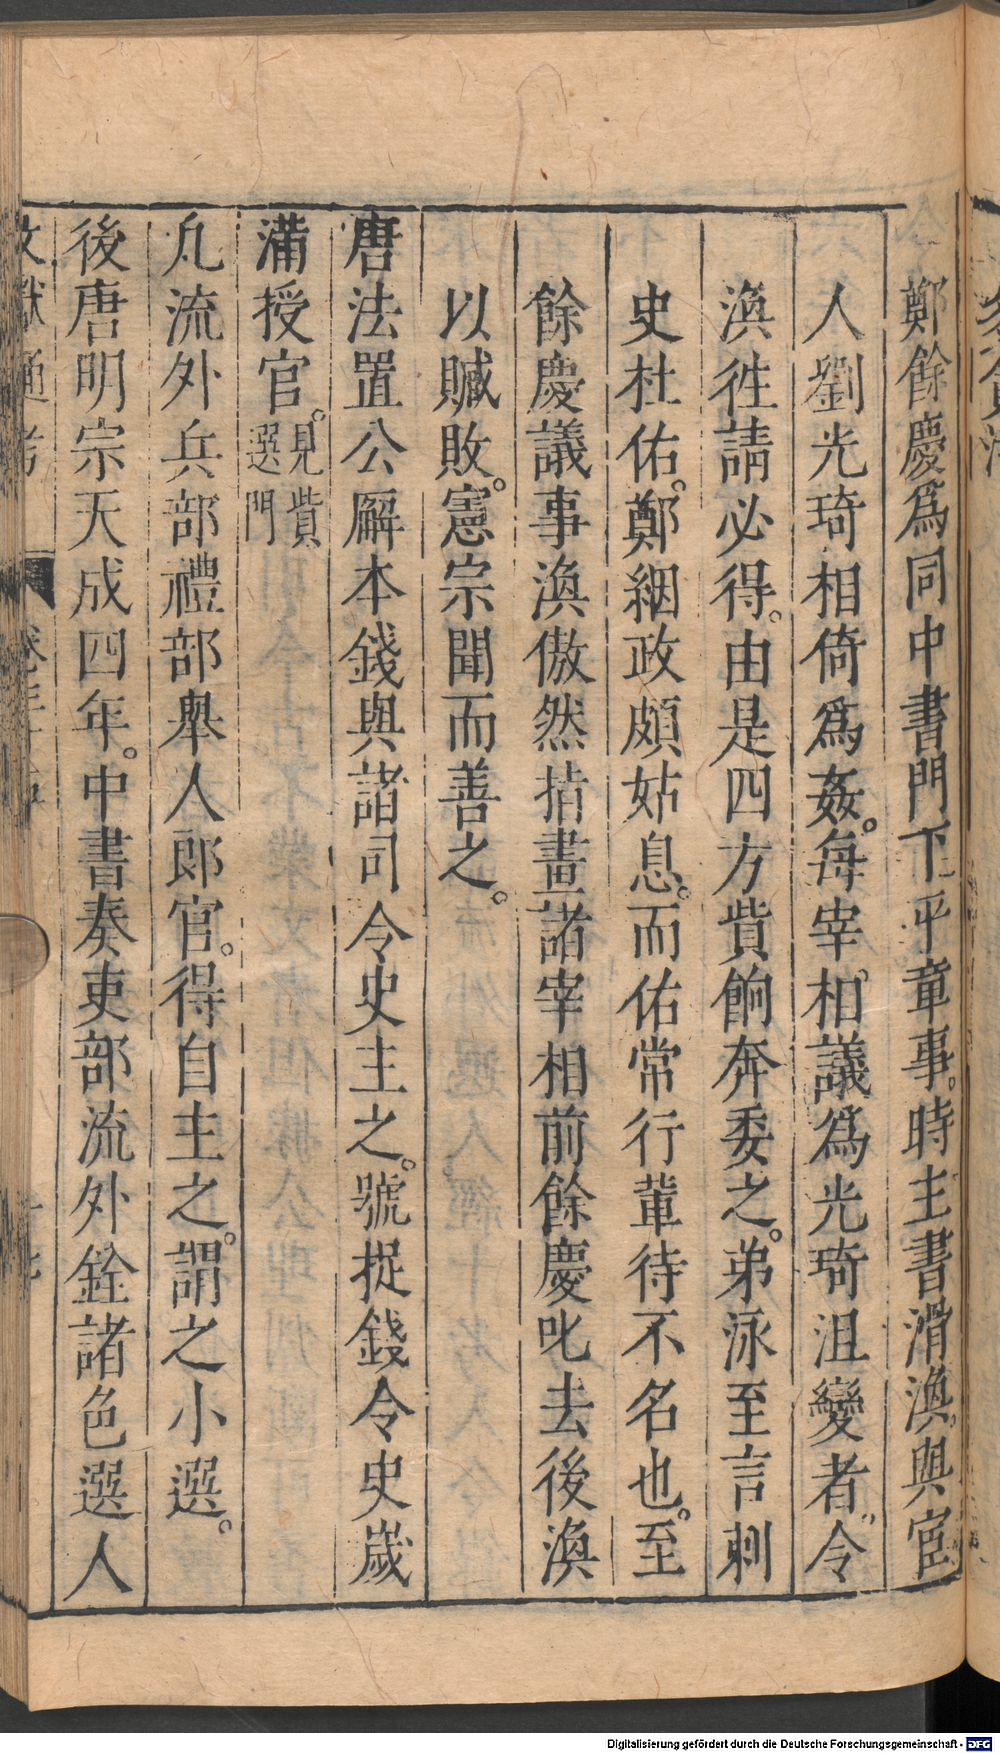 鄭餘慶爲同中書門下平章事。時主書滑渙。與宦
人劉光琦相倚爲姦。每宰相議爲光琦沮變者。令
渙徃請必得。由是四方貲餉奔委之。弟泳至言刺
史杜佑。鄭絪政頗姑息。而佑常行輩待不名也。至
餘慶議事渙傲然指畫諸宰相前餘慶叱去後渙
以贓敗。憲宗聞而善之。
唐法置公廨本錢與諸司令史主之。號捉錢令史歲
滿授官。見貲選門
凡流外兵部禮部舉人郎官。得自主之。謂之小選。
後唐明宗天成四年。中書奏吏部流外銓諸色選人
文獻通考
Digitalisierung gefördert durch die Deutsche Forschungsgemeinschaft - DFG